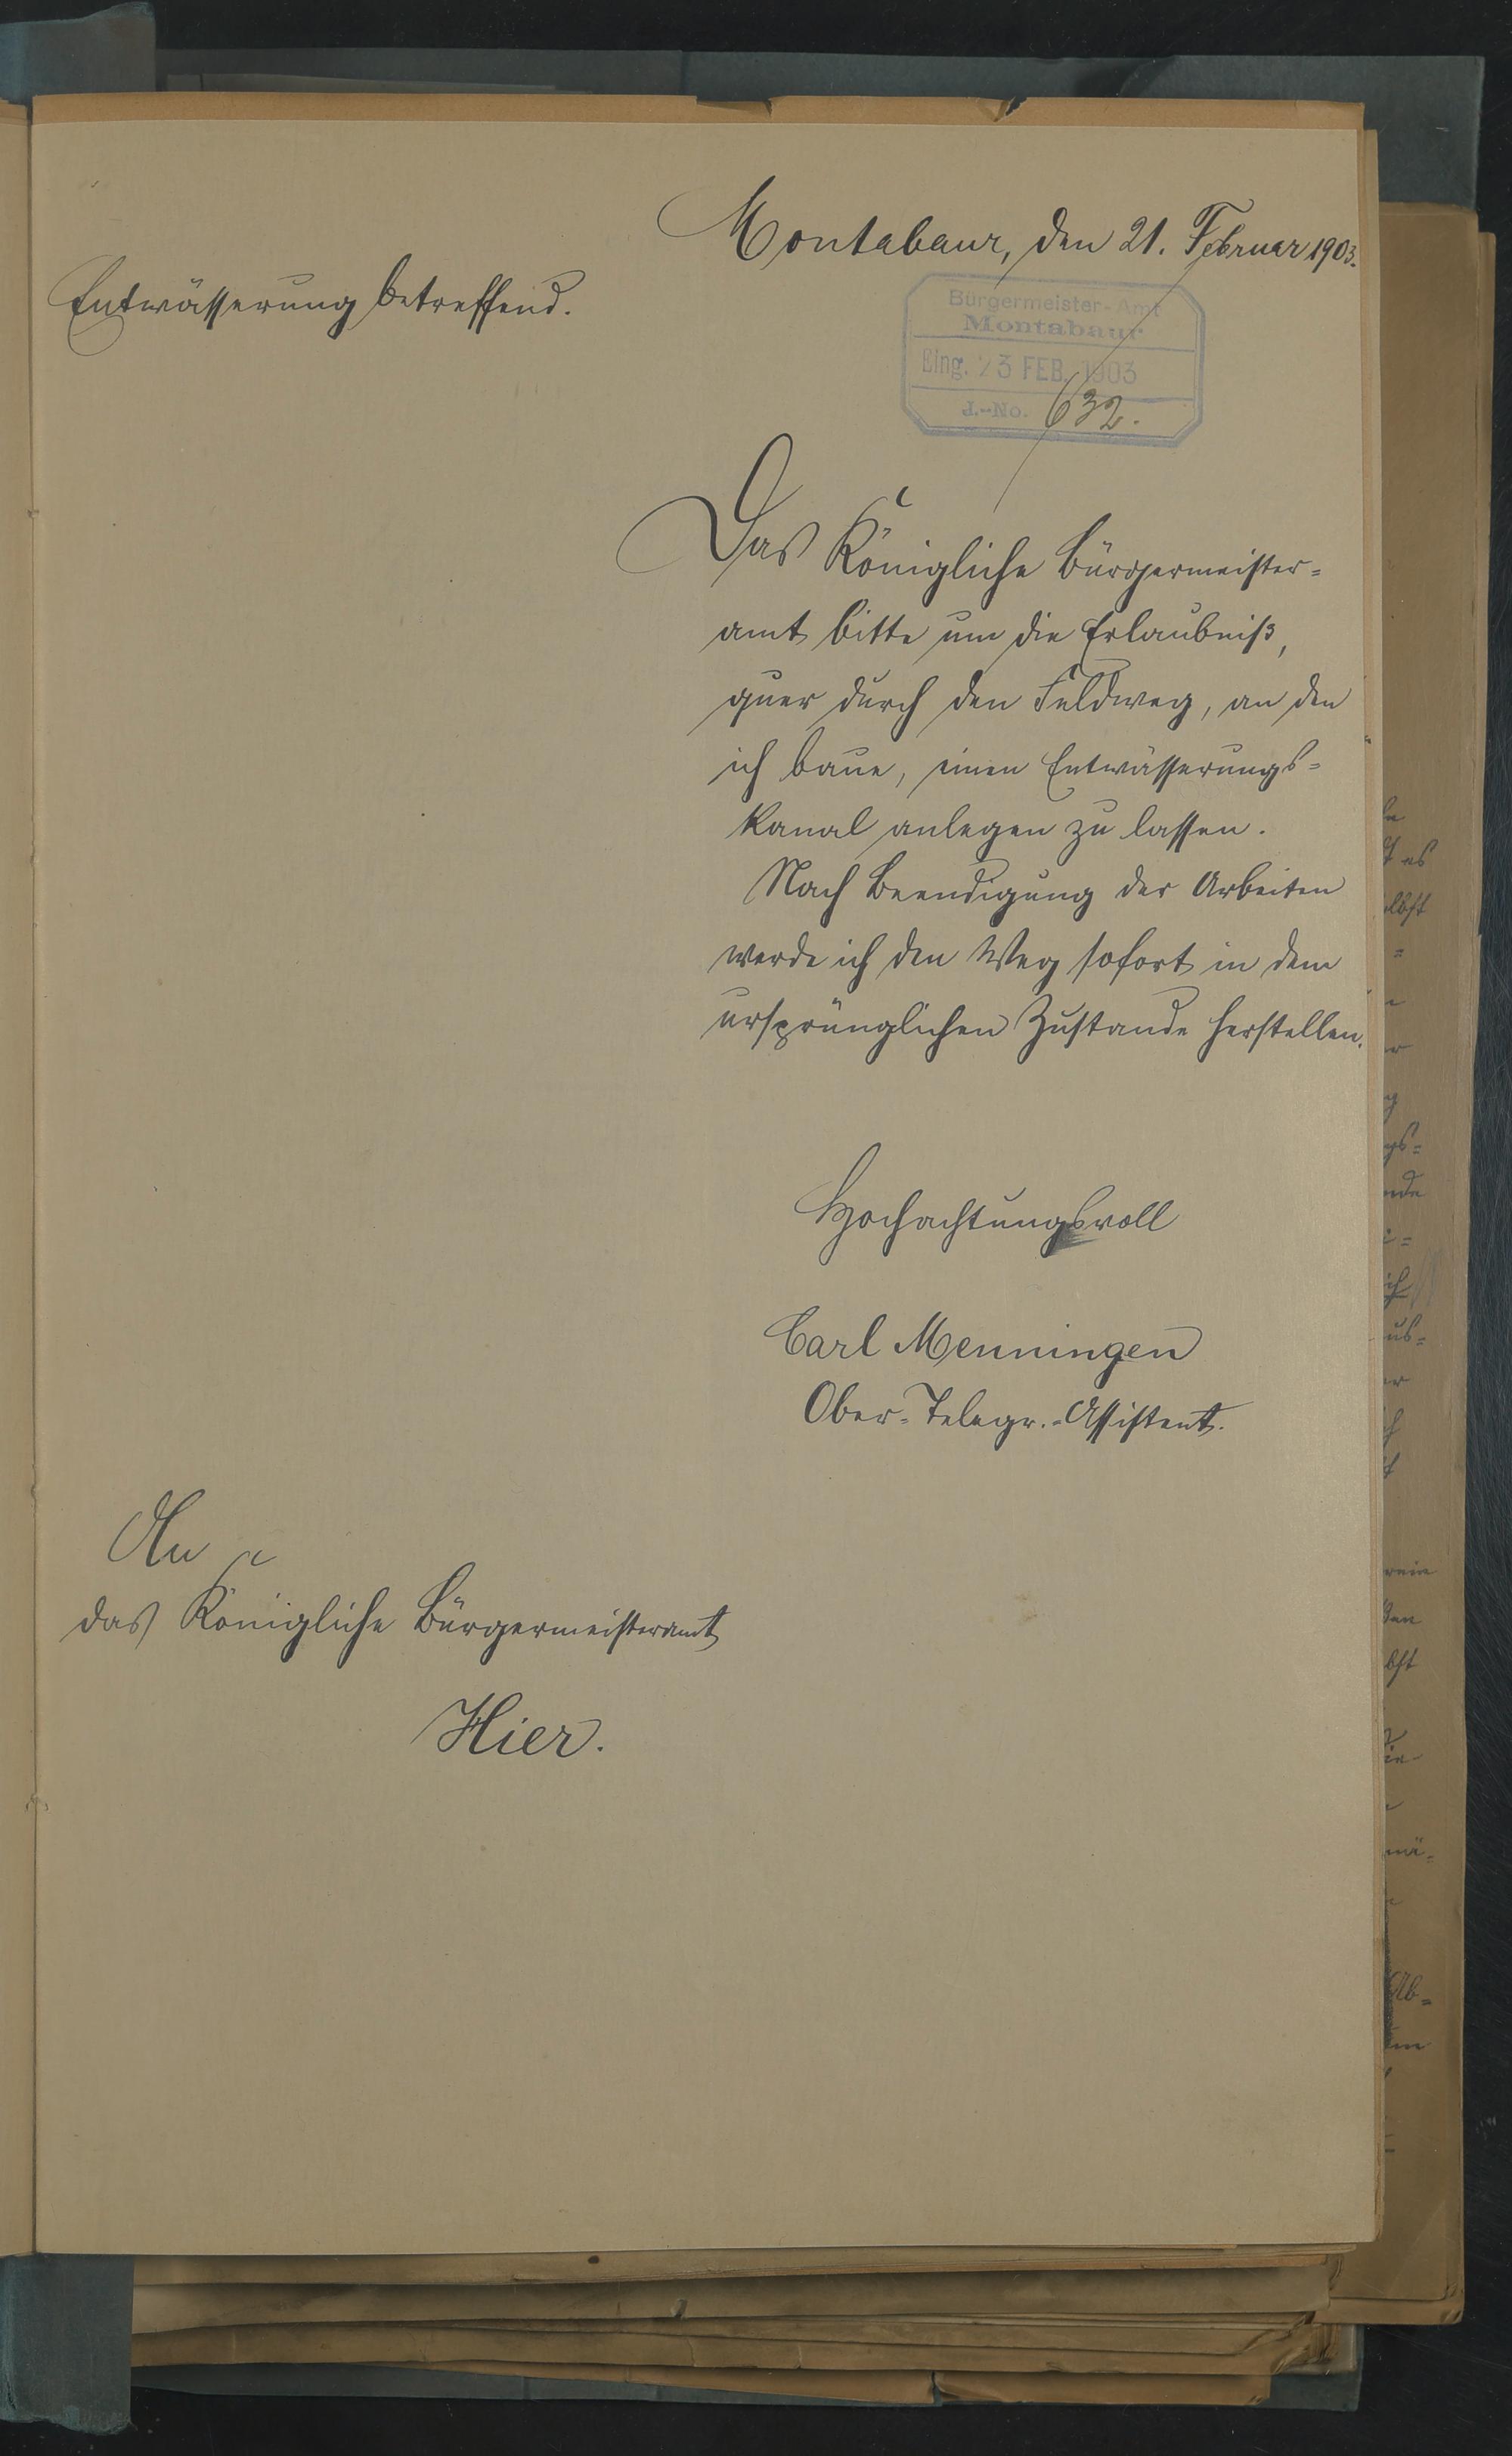 Montabaur, den 21. Februar 1903.
Entwässerung betreffend.
Bürgermeister-Amt
Montabaur
Eing. 23 FEB. 1903
J.-No. 632.
Das Königliche Bürgermeister=
amt bitte um die Erlaubniß,
quer durch den Feldweg, an den
ich baue, einen Entwässerungs=
kanal anlegen zu lassen.
Nach Beendigung der Arbeiten
werde ich den Weg sofort in dem
ursprünglichen Zustande herstellen.
Hochachtungsvoll
Carl Menningen
Ober-Telegr.-Assistent.
An
das Königliche Bürgermeisteramt
Hier.